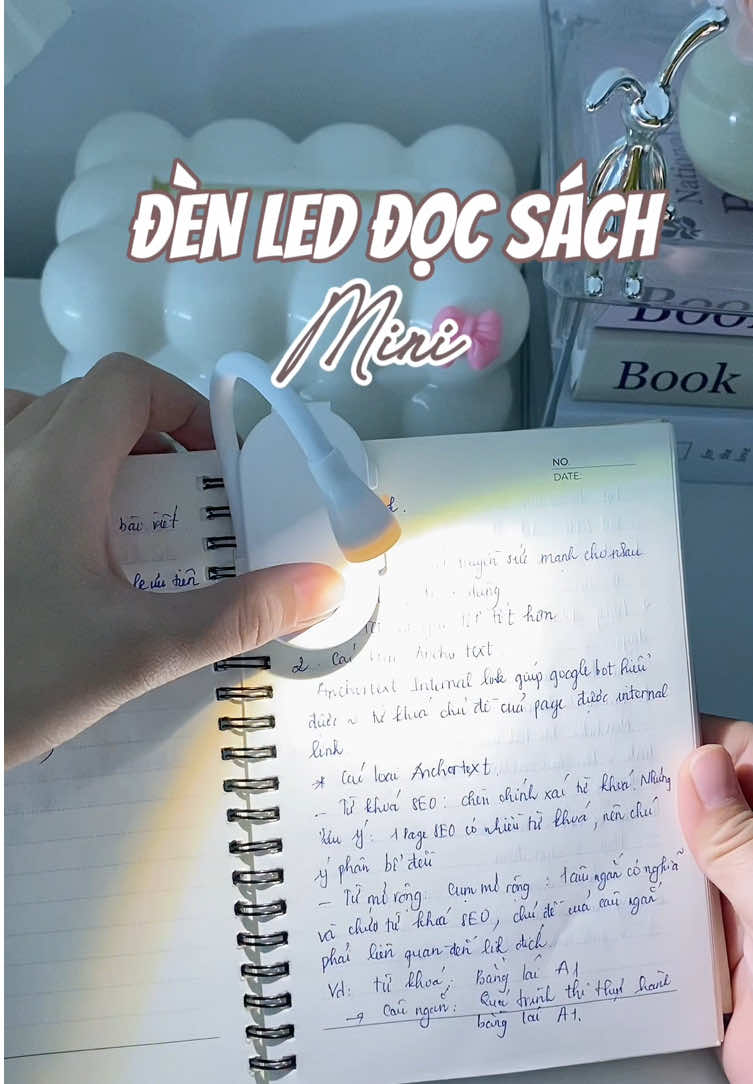 ĐÈN LED ĐỌC SÁCH
Mini
National
Book
Book
NO.
DATE:
bài viết
sức mạnh cho nhau
dung
tốt hơn
2. Các Anchor text
Anchortext Internal link giúp google bot hiểu
được từ khoá chủ đề của page được internal
link
* Các loại Anchortext.
- Từ khoá SEO: chèn chính xác từ khoá. Nhưng
lưu ý: 1 Page SEO có nhiều từ khoá, nên chú
ý phân bổ đều
- Từ mở rộng: Cụm mở rộng: 1 câu ngắn có nghĩa
và chứa từ khoá SEO, chủ đề của câu ngắn
phải liên quan đến link đích.
Vd: từ khoá: Bằng lái A1
→ Câu ngắn: Quá trình thi thực hành
bằng lái A1.